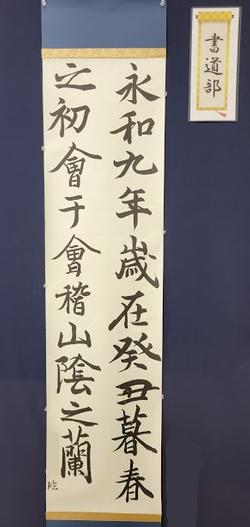 永和九年歳在癸丑暮春
之初會于會稽山陰之蘭
書道部